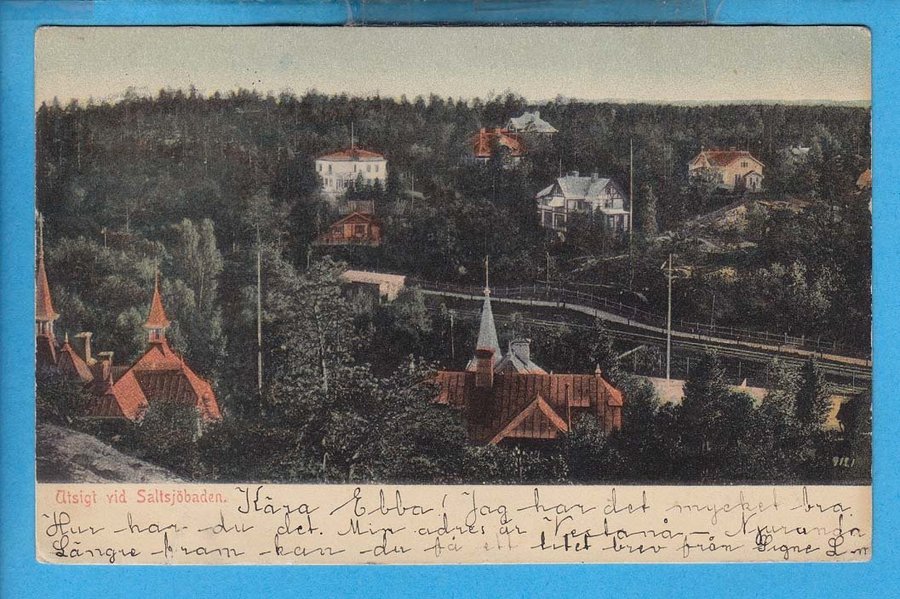 9121
Utsigt vid Saltsjöbaden. Kära Ebba! Jag har det mycket bra.
Hur har du det. Min adres är Vestanå, Njurunda
Längre fram kan du få ett litet brev från Signe L